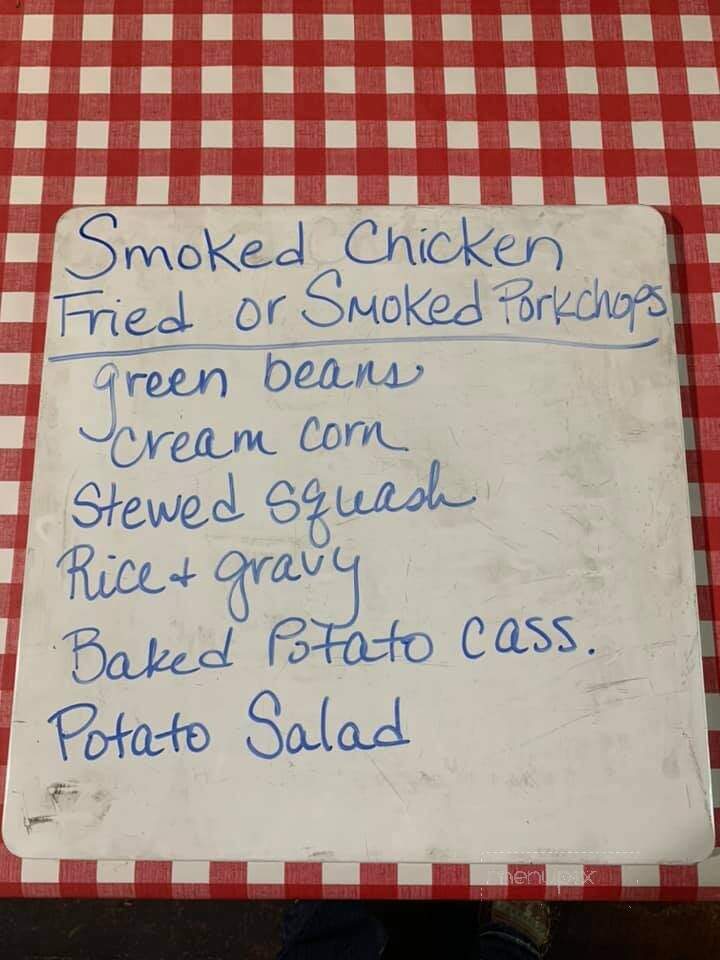 Smoked Chicken
Fried or Smoked Porkchops
green beans
cream corn
Stewed squash
Rice + gravy
Baked Potato cass.
Potato Salad
menupix